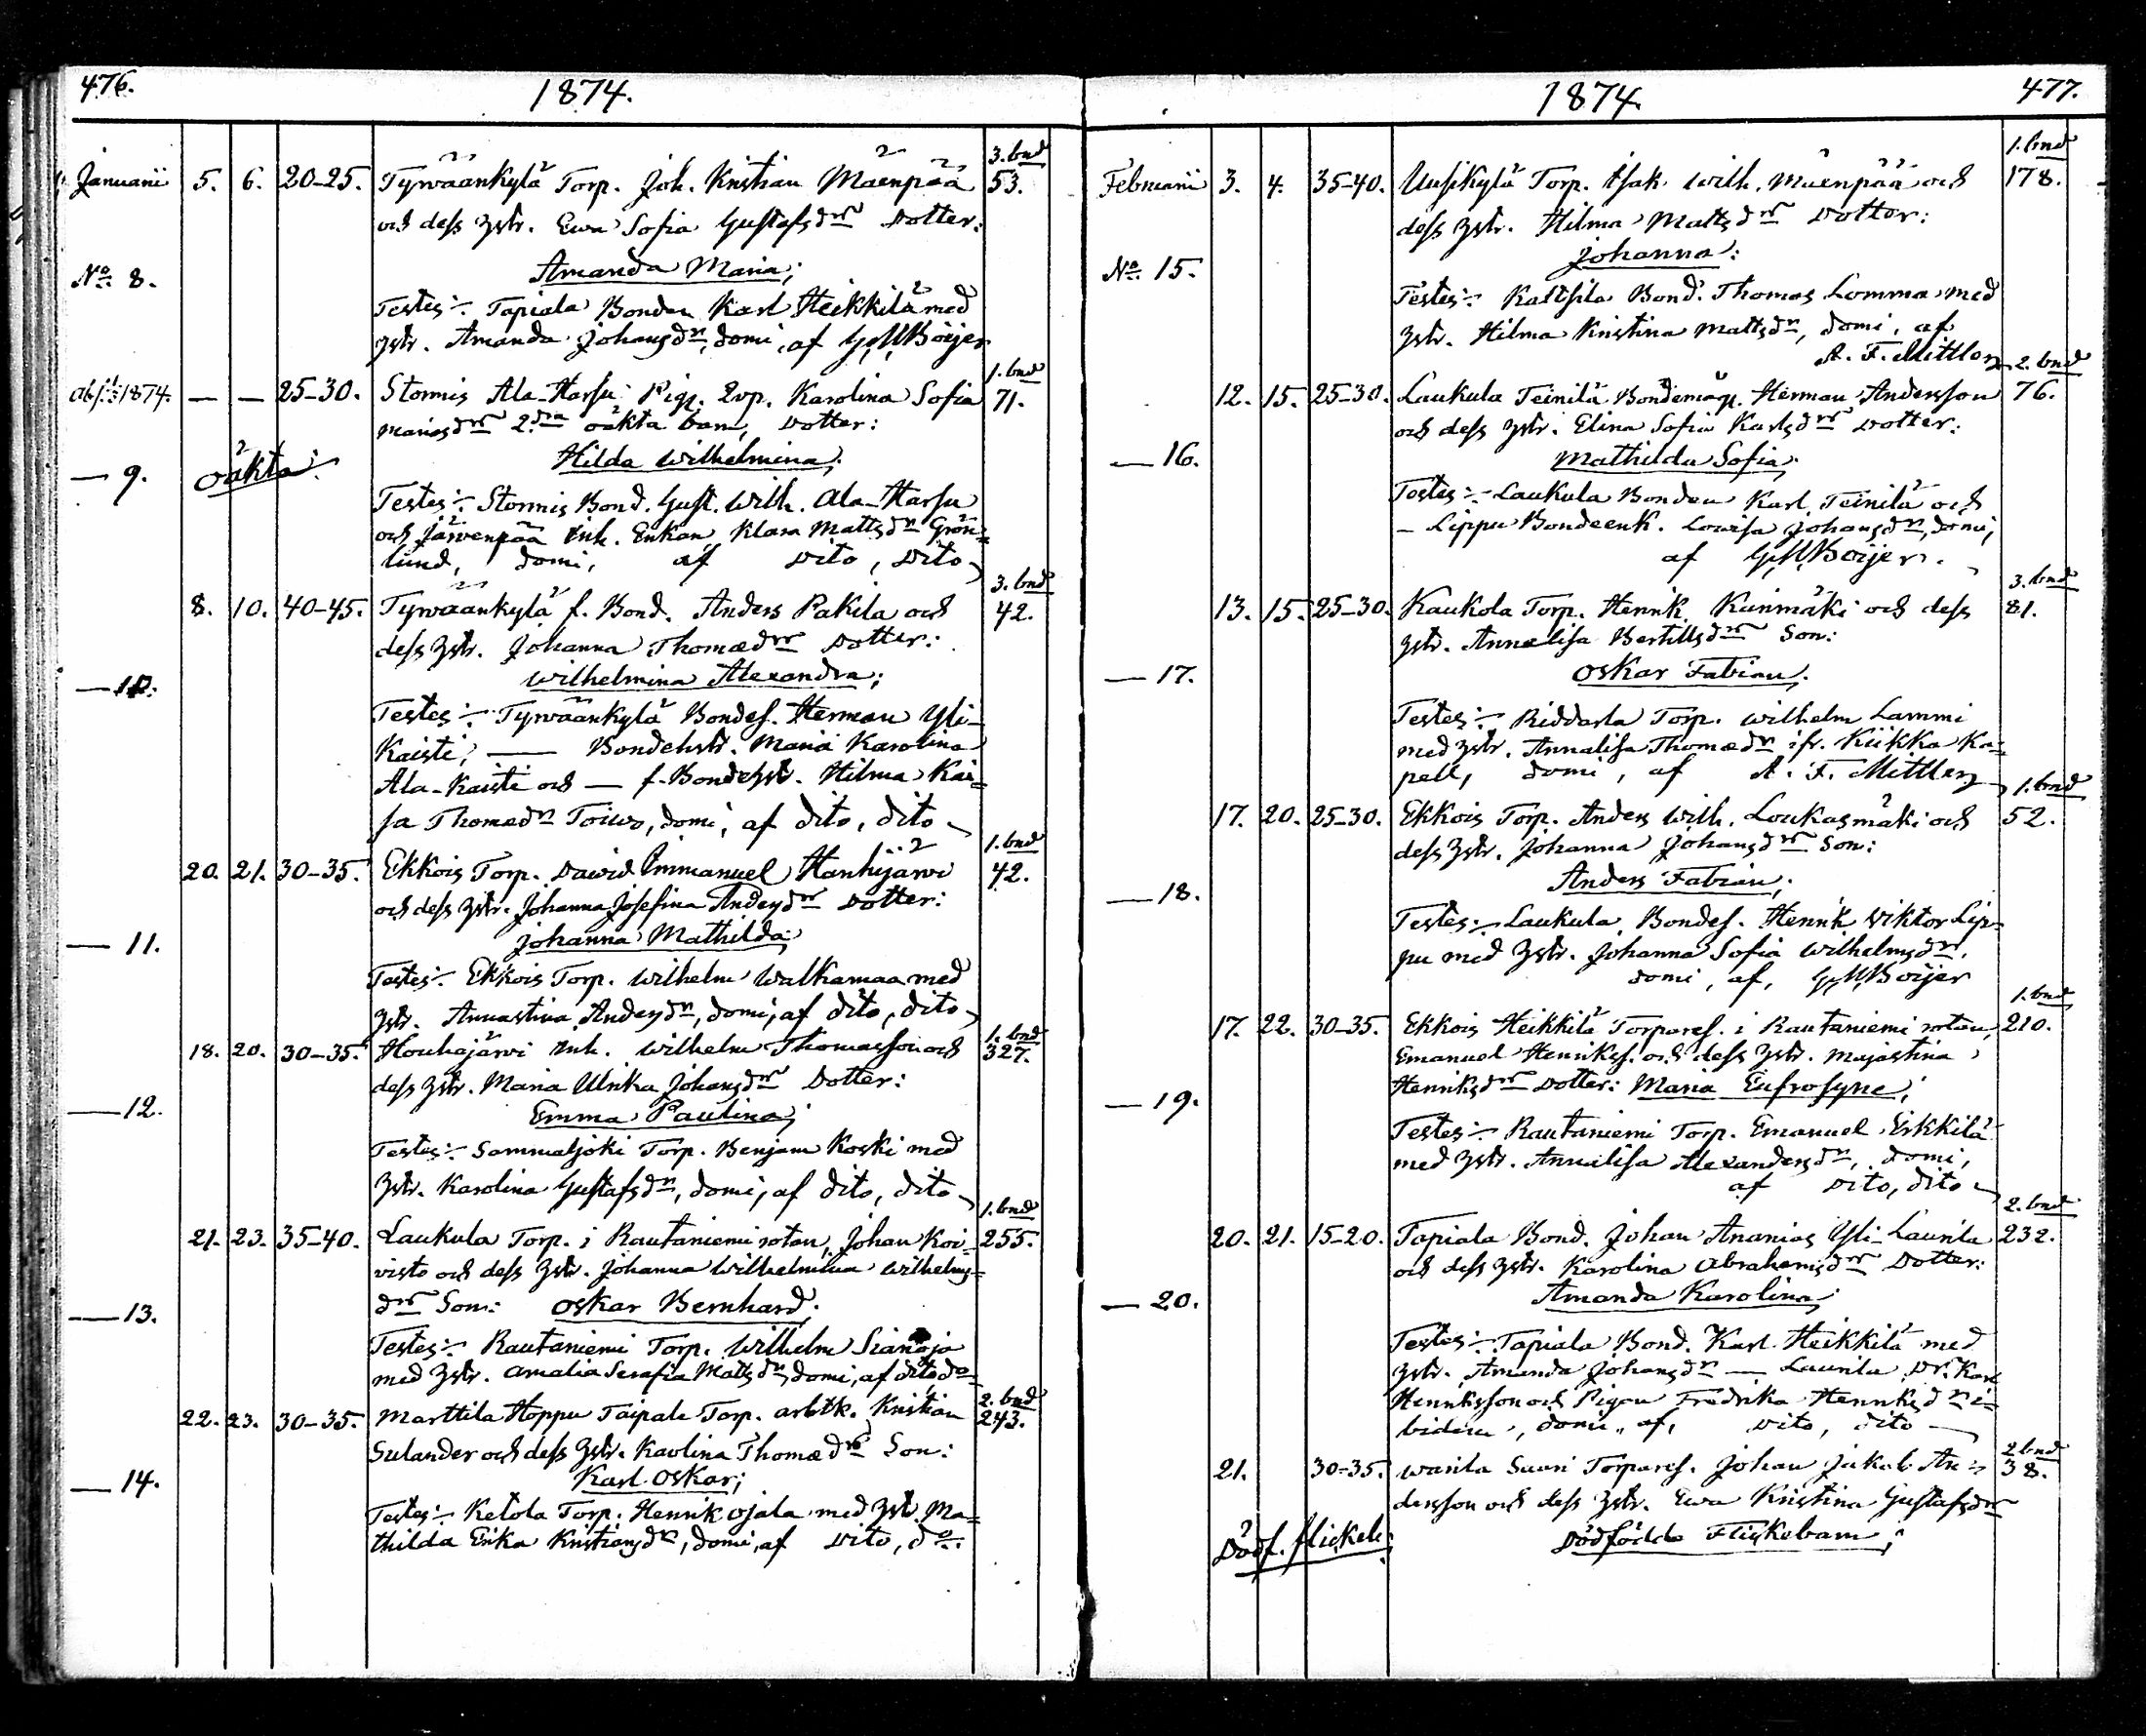 476.
1874.
3. bnd
Januarii 5. 6. 20-25. Tyrwäänkylä Torp. Joh. Kristian Mäenpää 53.
och dess hstr. Ewa Sofia Gustafsdr Dotter:
No 8. Amanda Maria;
Testes:- Tapiala Bonden Karl Heikkilä med
hstr. Amanda Johansdr, domi, af G M Boijer
1. bnd
1874. — — 25-30. Stormis Ala-Harsu Pig. Karolina Sofia 71.
Mariasdr 2:dra oäkta barn, Dotter:
— 9. oäkta: Hilda Wilhelmina;
Testes:- Stormis Bond. Gust. Wilh. Ala-Harsu
och Järvenpää Inh. Enkan Klara Mattsdr Grön-
lund, domi, af Dito, Dito
3. bnd
8. 10. 40-45. Tyrwäänkylä f. Bond. Anders Pakila och 42.
dess hstr. Johanna Thomædr Dotter:
— 10. Wilhelmina Alexandra;
Testes:- Tyrwäänkylä Bondes. Herman Yli-
Kaisti, — Bondehstr. Maria Karolina
Ala-Kaisti och — f. Bondehstr. Hilma Kai-
sa Thomædr Toiwo, domi, af dito, dito
1. bnd
20. 21. 30-35. Ekkois Torp. Dawid Emmanuel Hanhijärwi 42.
och dess hstr. Johanna Josefina Andersdr Dotter:
— 11. Johanna Mathilda;
Testes:- Ekkois Torp. Wilhelm Walkamaa med
hstr. Annastina Andersdr, domi, af dito, dito
1. bnd
18. 20. 30-35. Houhajärwi Inh. Wilhelm Thomasson och 327.
dess hstr. Maria Ulrika Johansdr Dotter:
— 12. Emma Paulina;
Testes:- Sammaljoki Torp. Benjam Koski med
hstr. Karolina Gustafsdr, domi, af dito, dito
1. bnd
21. 23. 35-40. Laukula Torp. i Rautaniemi rotan, Johan Koi- 255.
visto och dess hstr. Johanna Wilhelmina Wilhelms-
— 13. dr Son: Oskar Bernhard.
Testes:- Rautaniemi Torp. Wilhelm Sianoja
med hstr. Amalia Serafia Mattsdr, domi, af dito, do
2. bnd
22. 23. 30-35. Marttila Hoppu Taipale Torp. arbtk. Kristian 243.
Sulander och dess hstr. Kaolina Thomædr Son:
— 14. Karl Oskar;
Testes:- Ketola Torp. Henrik Ojala med hstr. Ma-
thilda Erika Kristiansdr, domi, af Dito, do.
1874.
477.
1. bnd
Februarii 3. 4. 35-40. Uusikylä Torp. Isak Wilh. Mäenpää och 178.
dess hstr. Hilma Mattsdr Dotter:
No 15. Johanna:
Testes:- Kaltsila Bond. Thomas Lomma med
hstr. Hilma Kristina Mattsdr, domi, af
A. F. Mittler
2. bnd
12. 15. 25-30. Laukula Teinilä Bondemåg. Herman Andersson 76.
och dess hstr. Elina Sofia Karlsdr Dotter:
— 16. Mathilda Sofia;
Testes:- Laukula Bonden Karl Teinilä och
— Lippu Bondeenk. Lovisa Johansdr, domi,
af G M Boijer.
3. bnd
13. 15. 25-30. Kaukola Torp. Henrik Kunimäki och dess 81.
hstr. Annalisa Bertillsdr Son:
— 17. Oskar Fabian;
Testes:- Riddarla Torp. Wilhelm Lammi
med hstr. Annalisa Thomædr ifr. Kiikka Ka-
pell, domi, af A. F. Mittler
1. bnd
17. 20. 25-30. Ekkois Torp. Anders Wilh. Loukasmäki och 52.
dess hstr. Johanna Johansdr Son:
— 18. Anders Fabian;
Testes:- Laukula Bondes. Henrik Viktor Lip-
pu med hstr. Johanna Sofia Wilhelmsdr,
domi, af, G M Boijer
1. bnd
17. 22. 30-35. Ekkois Heikkilä Torpares. i Rautaniemi rotan, 210.
Emanuel Henrikss. och dess hstr. Majastina
— 19. Henriksdr Dotter: Maria Eufrosyne;
Testes:- Rautaniemi Torp. Emanuel Erkkilä
med hstr. Annalisa Alexandersdr, domi,
af Dito, dito
2. bnd
20. 21. 15-20. Tapiala Bond. Johan Ananias Yli-Laurila 232.
och dess hstr. Karolina Abrahamsdr Dotter:
— 20. Amanda Karolina;
Testes:- Tapiala Bond. Karl Heikkilä med
hstr. Amanda Johansdr — Laurila Dr. Karl
Henriksson och Pigan Fredrika Henriksdr i-
bidem, domi, af, Dito, dito
2 bnd
21. 30-35. Warila Saari Torpares. Johan Jakob An- 38.
dersson och dess hstr. Ewa Kristina Gustafsdr
Dödf. flickeb: Dödfödde Flickobarn;